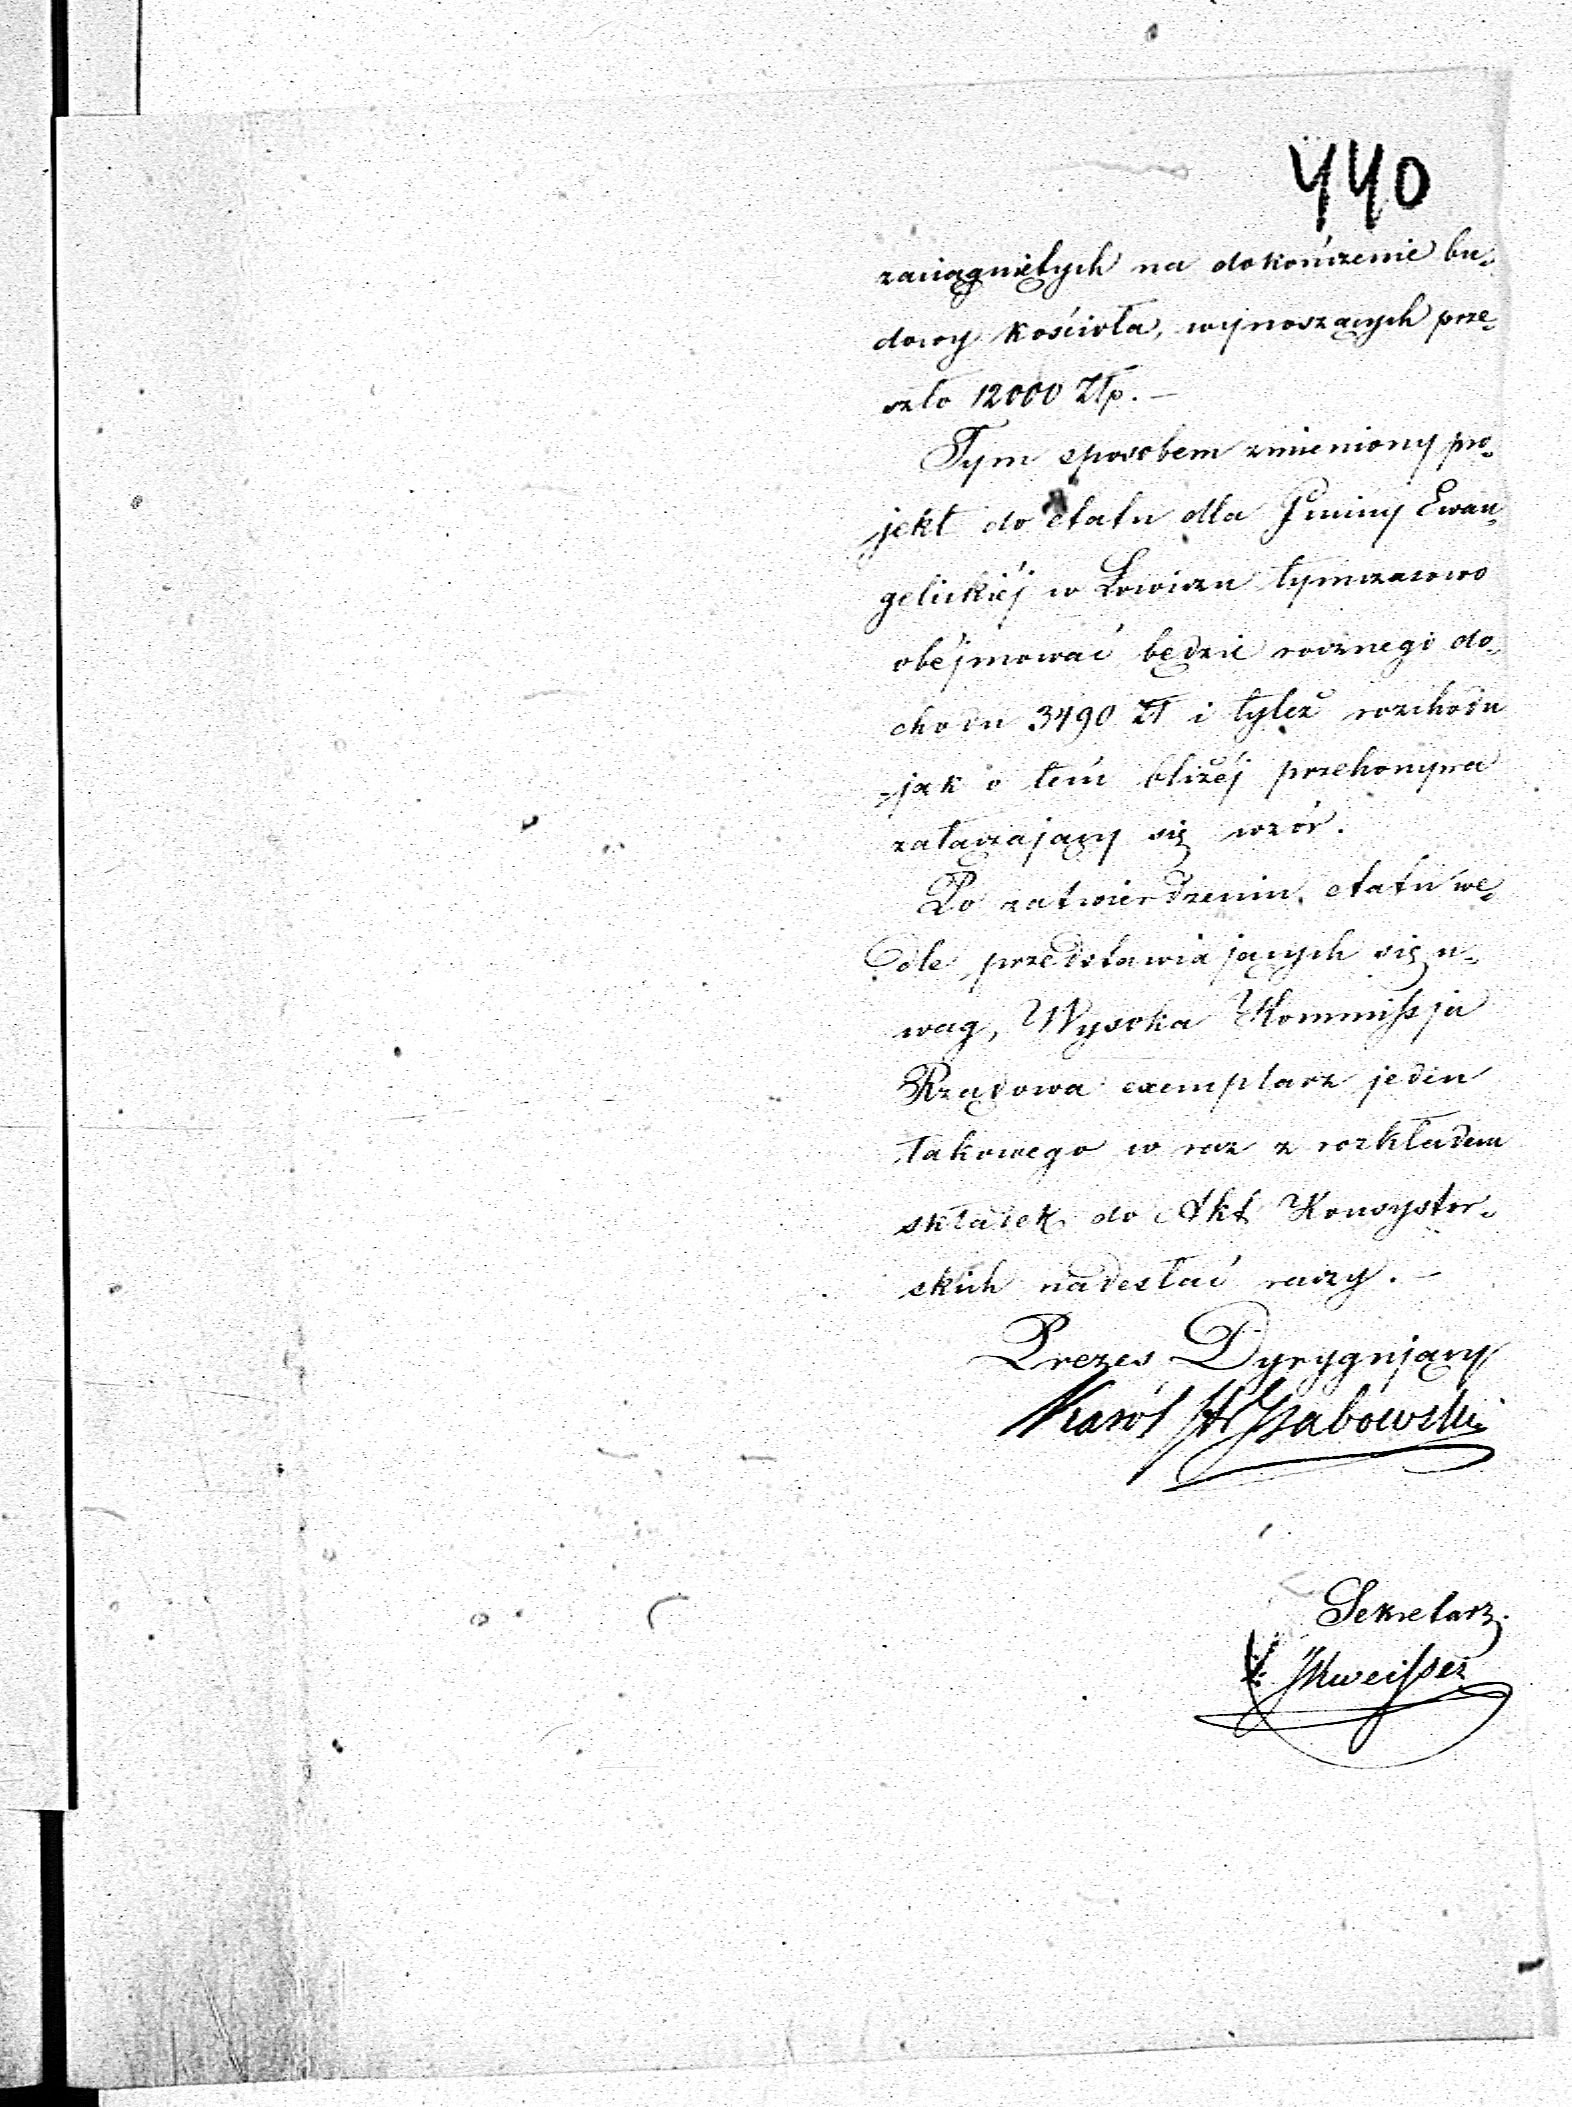 440
zaciągniętych na dokończenie bu-
dowy Kościoła, wynoszących prze-
szło 12000 Złp. —
Tym sposobem zmieniony pro-
jekt do etatu dla Gminy Ewan-
gelickiéj w Łowiczu tymczasowo
obéjmować będzie rocznego do-
chodu 3490 Zł i tyleż rozchodu
jak o tém bliżéj przekonywa
załączający się wzór.
Po zatwierdzeniu etatu we-
dle przedstawiających się u-
wag, Wysoka Kommissja
Rządowa exemplarz jeden
takowego w raz z rozkładem
składek do Akt Konsystor-
skich nadesłać raczy. —
Prezes Dyrygujący
Karól Hr Grabowski
Sekretarz.